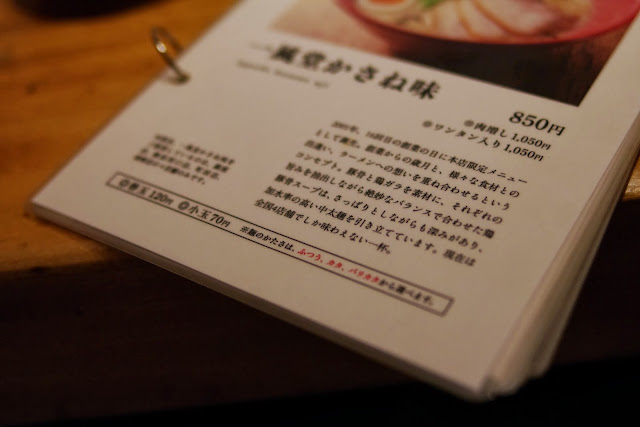 一風堂かさね味
850円
◎肉増し 1,050円
◎ワンタン入り 1,050円
2001年、16回目の創業の日に本店限定メニュー
として誕生。創業からの歳月と、様々な食材との
出逢い、ラーメンへの想いを重ね合わせるという
コンセプト。豚骨と鶏ガラを素材に、それぞれの
旨みを抽出しながら絶妙なバランスで合わせた鶏
豚骨スープは、さっぱりとしながらも深みがあり、
加水率の高い中太麺を引き立てています。現在は
全国4店舗でしか味わえない一杯。
◎替玉 120円 ◎小玉 70円 ※麺のかたさは、ふつう、カタ、バリカタから選べます。